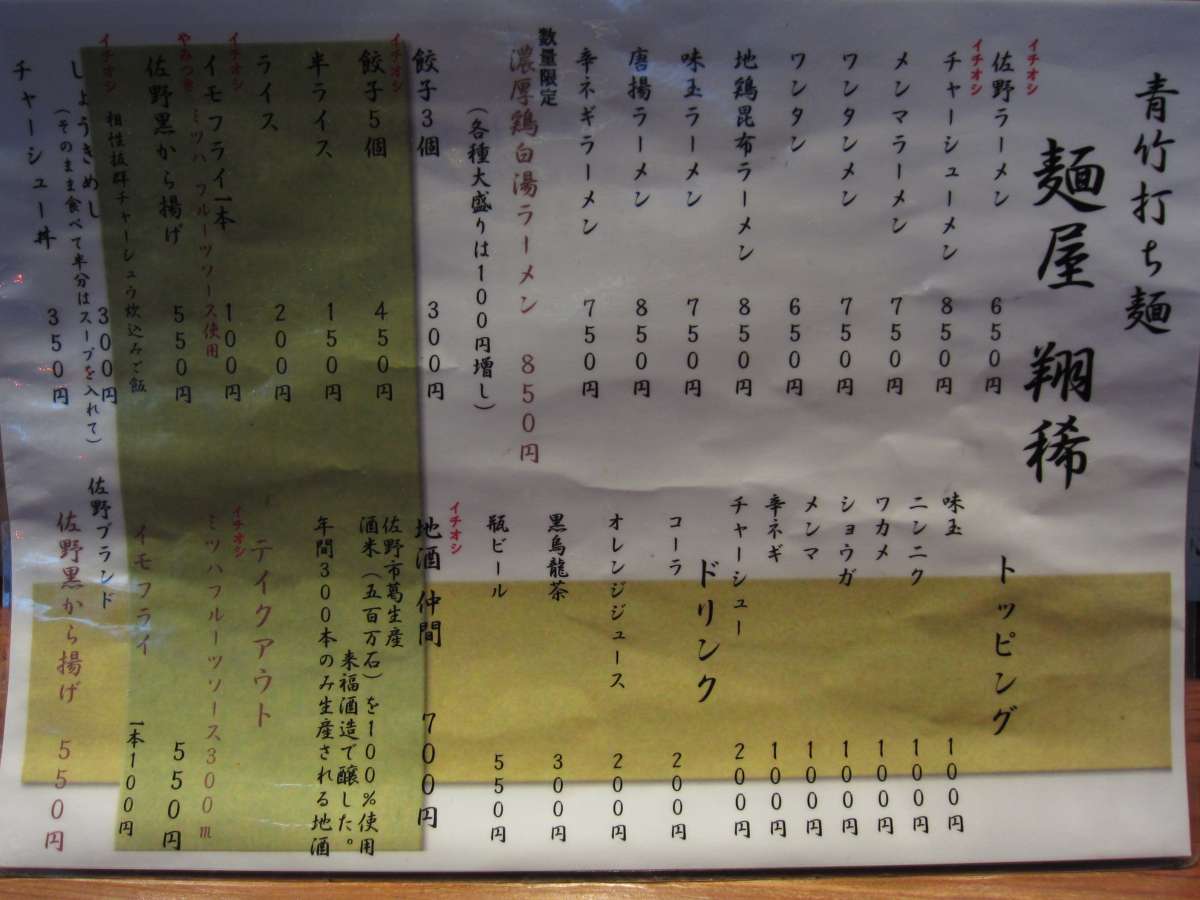 青竹打ち麺
麺屋 翔稀
イチオシ
佐野ラーメン 650円
イチオシ
チャーシューメン 850円
メンマラーメン 750円
ワンタンメン 750円
ワンタン 650円
地鶏昆布ラーメン 850円
味玉ラーメン 750円
唐揚ラーメン 850円
辛ネギラーメン 750円
数量限定
濃厚鶏白湯ラーメン 850円
(各種大盛りは100円増し)
餃子3個 300円
イチオシ
餃子5個 450円
半ライス 150円
ライス 200円
イチオシ
イモフライ一本 100円
ミツハ フルーツソース使用
やみつき
佐野黒から揚げ 550円
相性抜群チャーシュウ炊込みご飯
イチオシ
しょうきめし 300円
(そのまま食べて半分はスープを入れて)
チャーシュー丼 350円
トッピング
味玉 100円
ニンニク 100円
ワカメ 100円
ショウガ 100円
メンマ 100円
辛ネギ 100円
チャーシュー 200円
ドリンク
コーラ 200円
オレンジジュース 200円
黒烏龍茶 300円
瓶ビール 550円
イチオシ
地酒 仲間 700円
佐野市葛生産
酒米(五百万石)を100%使用
来福酒造で醸した。
年間300本のみ生産される地酒
テイクアウト
イチオシ
ミツハフルーツソース300m
550円
イモフライ
一本100円
佐野ブランド
佐野黒から揚げ 550円